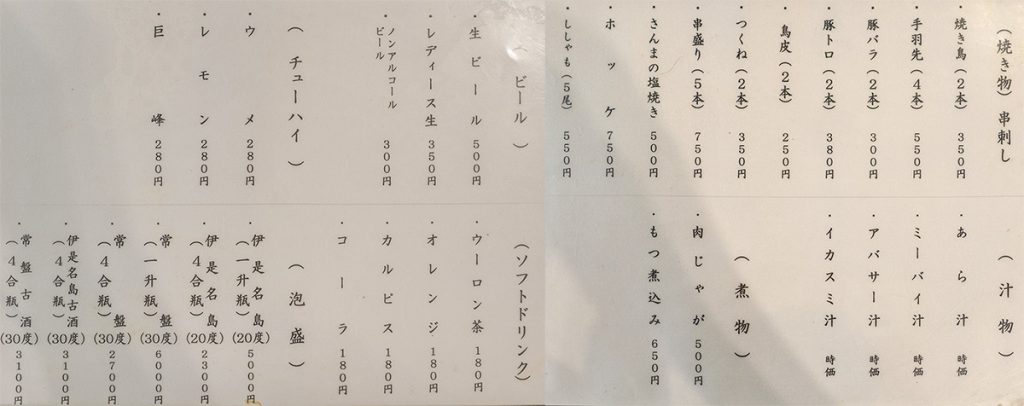 (焼き物)串刺し
・焼き鳥(2本) 350円
・手羽先(4本) 550円
・豚バラ(2本) 300円
・豚トロ(2本) 380円
・鳥皮(2本) 250円
・つくね(2本) 350円
・串盛り(5本) 750円
・さんまの塩焼き 500円
・ホッケ 750円
・ししゃも(5尾) 550円
(汁物)
・あら汁 時価
・ミーバイ汁 時価
・アバサー汁 時価
・イカスミ汁 時価
(煮物)
・肉じゃが 500円
・もつ煮込み 650円
(ビール)
・生ビール 500円
・レディース生 350円
・ノンアルコールビール 300円
(チューハイ)
・ウメ 280円
・レモン 280円
・巨峰 280円
(ソフトドリンク)
・ウーロン茶 180円
・オレンジ 180円
・カルピス 180円
・コーラ 180円
(泡盛)
・伊是名島(一升瓶)(20度) 5000円
・伊是名島(4合瓶)(20度) 2300円
・常盤(一升瓶)(30度) 6000円
・常盤(4合瓶)(30度) 2700円
・伊是名島古酒(4合瓶)(30度) 3100円
・常盤古酒(4合瓶)(30度) 3100円